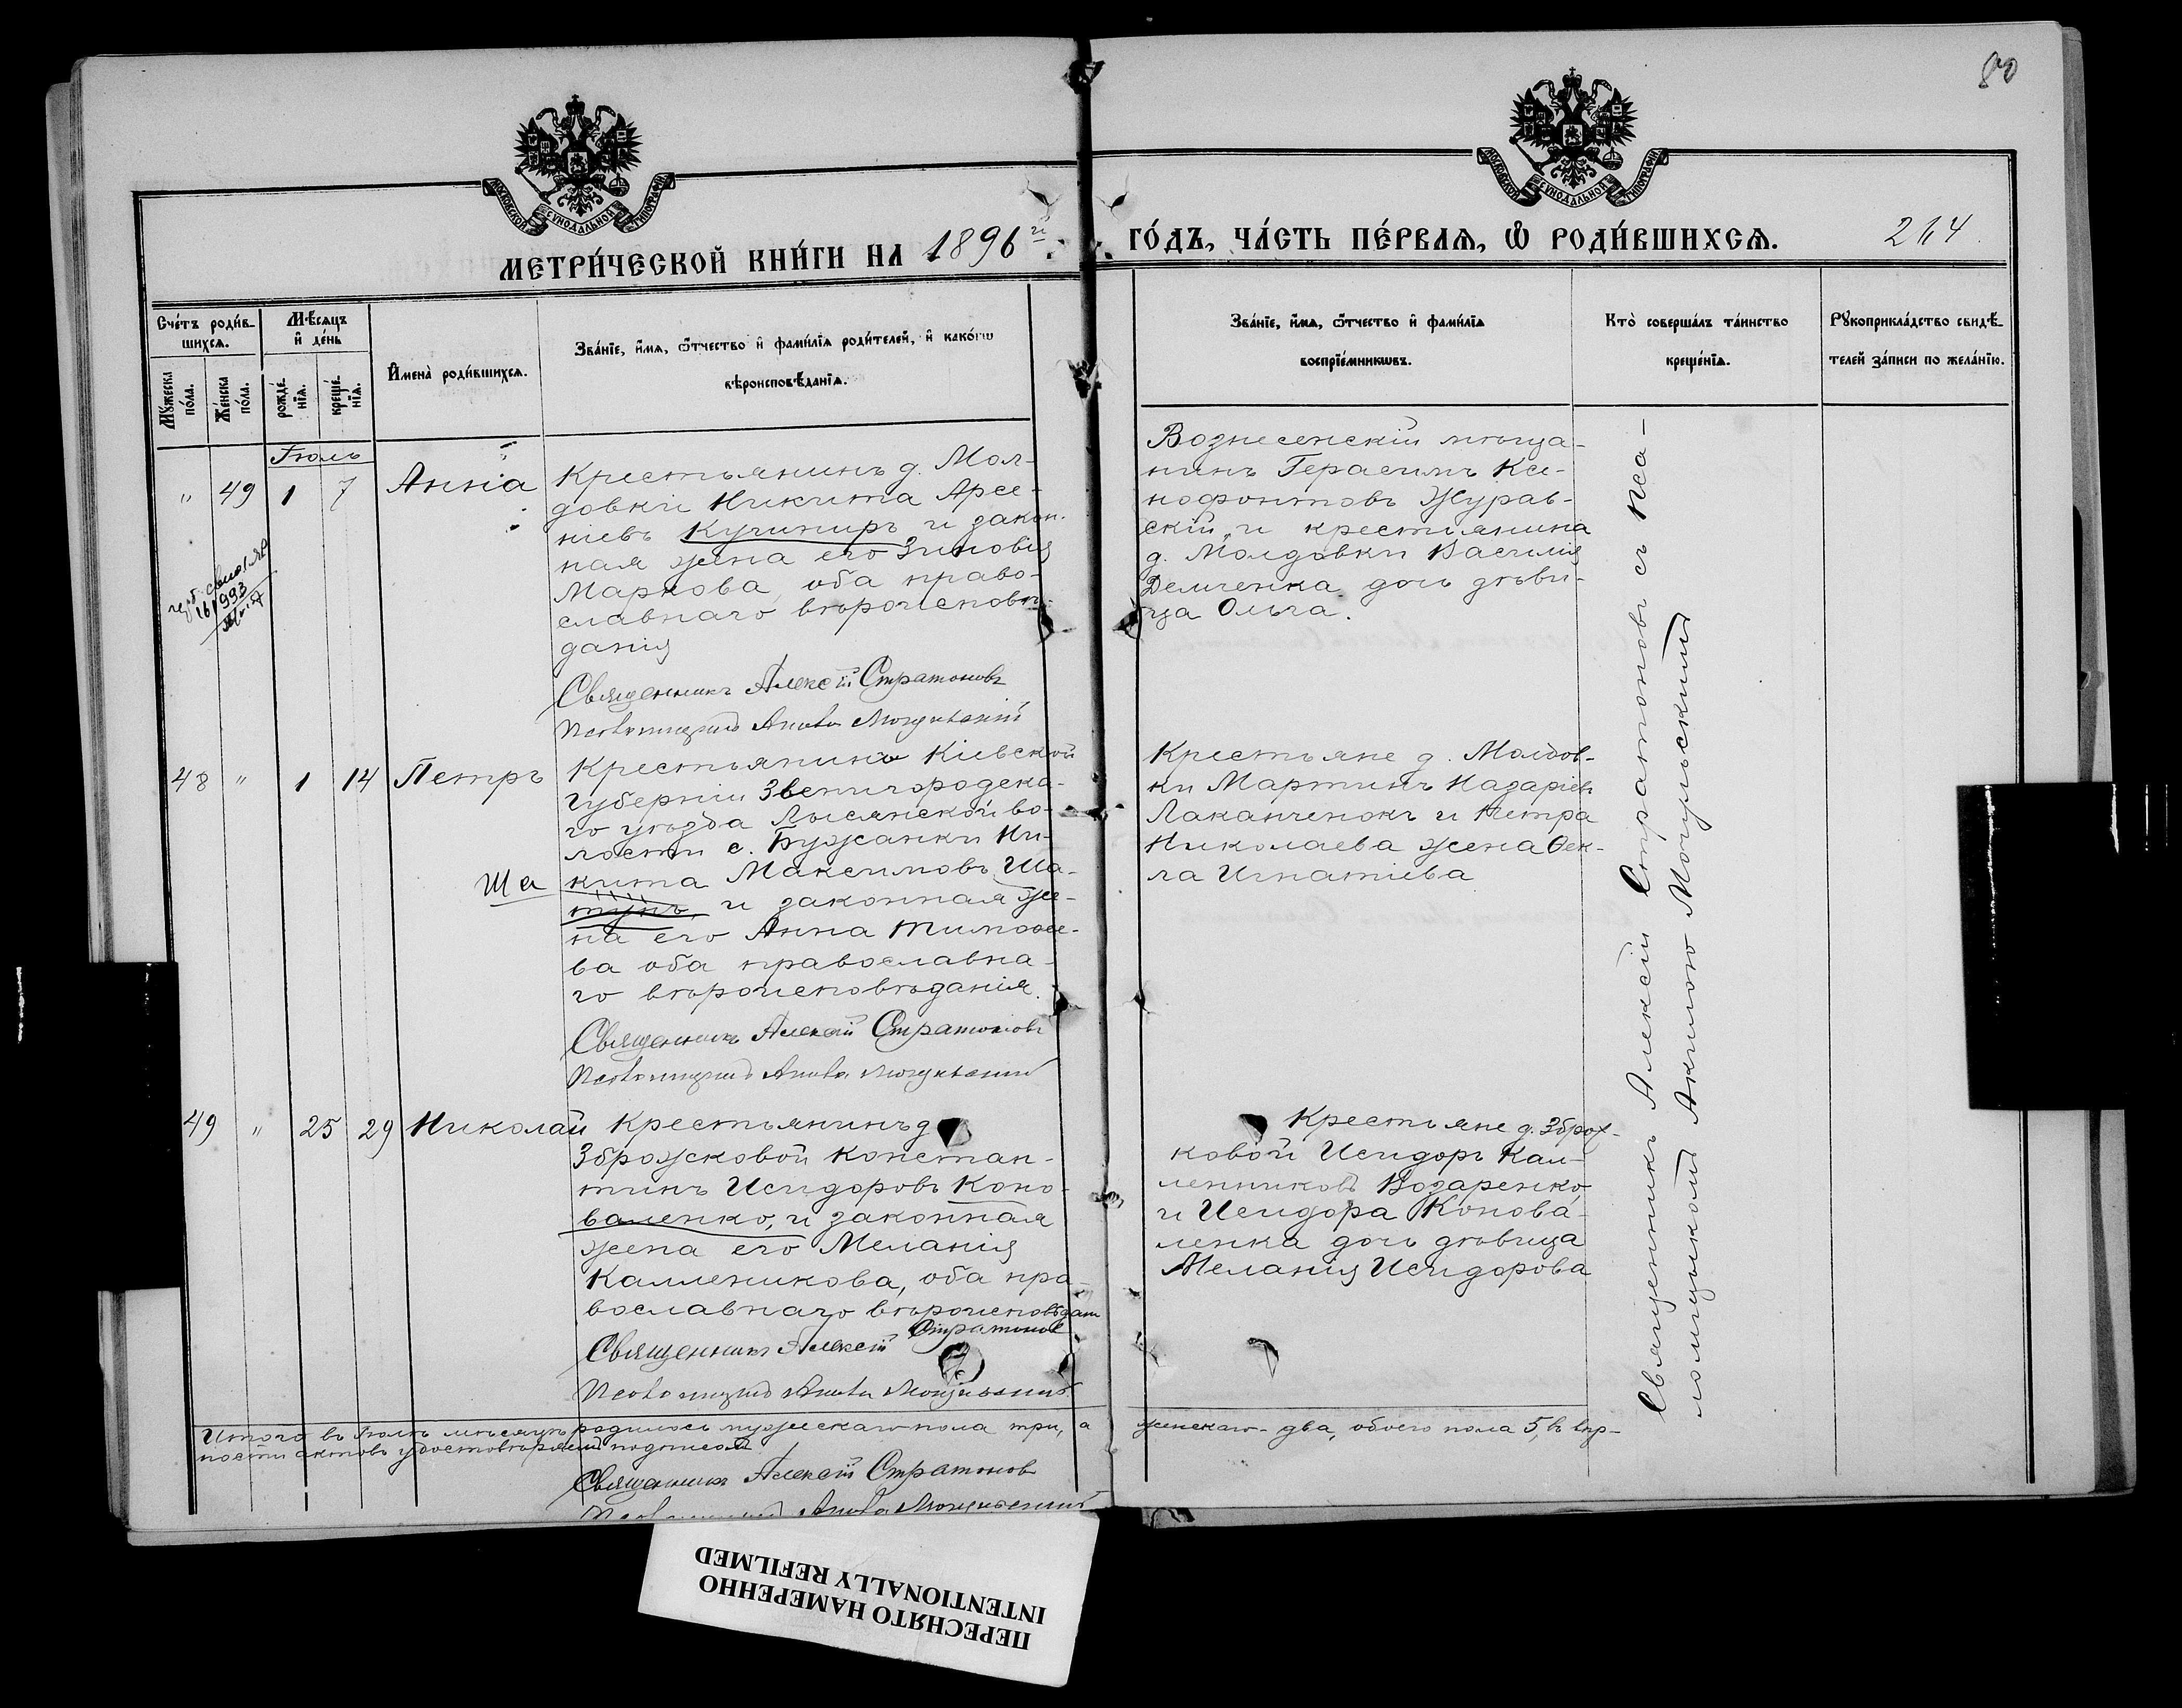 80
МОСКОВСКОЙ СѴНОДАЛЬНОЙ ТИПОГРАФІИ
МОСКОВСКОЙ СѴНОДАЛЬНОЙ ТИПОГРАФІИ
МЕТРИ́ЧЕСКОЙ КНИ́ГИ НА 1896 й
ГО́ДЪ, ЧА́СТЬ ПЕ́РВАѦ, Ѡ РОДИ́ВШИХСѦ.
264
Сче́тъ роди́в-
шихсѧ.
Мѣ́сѧцъ
и де́нь
Мꙋ́жеска
по́ла.
Же́нска
по́ла.
рожде́-
нїѧ.
креще́-
нїѧ.
Имена̀ роди́вшихсѧ.
Зва́нїе, и́мѧ, ѻ́тчество и фами́лїѧ роди́телей, и како́гѡ
вѣроисповѣ́данїѧ.
Зва́нїе, и́мѧ, ѻ́тчество и фами́лїѧ
воспрїе́мникѡвъ.
Кто̀ соверша́лъ та́инство
креще́нїѧ.
Рꙋкоприкла́дство свидѣ́-
телей за́писи по жела́нїю.
Іюль
" 49 1 7 Анна
Крестьянинъ д. Мол-
довки Никита Арсе-
ніевъ Кучиниръ и закон-
ная жена его Зиновія
Маркова, оба право-
славнаго вѣроисповѣ-
данія
Священникъ Алексій Стратоновъ
Псаломщикъ Акила Могульскій
Вознесенскій мѣща-
нинъ Герасимъ Ксе-
нофонтовъ Журав-
скій, и крестьянина
д. Молдовки Василія
Демченка дочь дѣви-
ца Ольга.
48 " 1 14 Петръ
Крестьянинъ Кіевской
губерніи Звенигородска-
го уѣзда Лысянской во-
лости с. Бужанки Ни-
кита Максимовъ Ша-
Ша
тунъ, и законная же-
на его Анна Тимофее-
ва оба православна-
го вѣроисповѣданія.
Священникъ Алексій Стратоновъ
Псаломщикъ Акила Могульскій
Крестьяне д. Молдов-
ки Мартинъ Назаріевъ
Лаканченокъ и Петра
Николаева жена Ѳек-
ла Игнатіева
49 " 25 29 Николай
Крестьянинъ д.
Зброжсковой Констан-
тинъ Исидоровъ Коно-
валенко, и законная
жена его Меланія
Каллениковa, оба пра-
вославнаго вѣроисповѣдан
Священникъ Алексій Стратонов
Псаломщикъ Акила Могульскій
Крестьяне д. Зброж-
ковой Исидоръ Кал-
лениковъ Бозаренко
и Исидора Конова-
ленка дочь дѣвица
Меланія Исидорова
Священникъ Алексій Стратоновъ съ Пса-
ломщикомъ Акилою Могульскимъ
Итого въ Іюлѣ мѣсяцѣ родилось мужескаго пола три, а женскаго - два, обоего пола 5, въ вѣр-
ности актовъ удостовѣряемъ подписомъ
Священникъ Алексій Стратонов
Псаломщикъ Акила Могульскій
ПЕРЕСНЯТО НАМЕРЕННО
INTENTIONALLY REFILMED